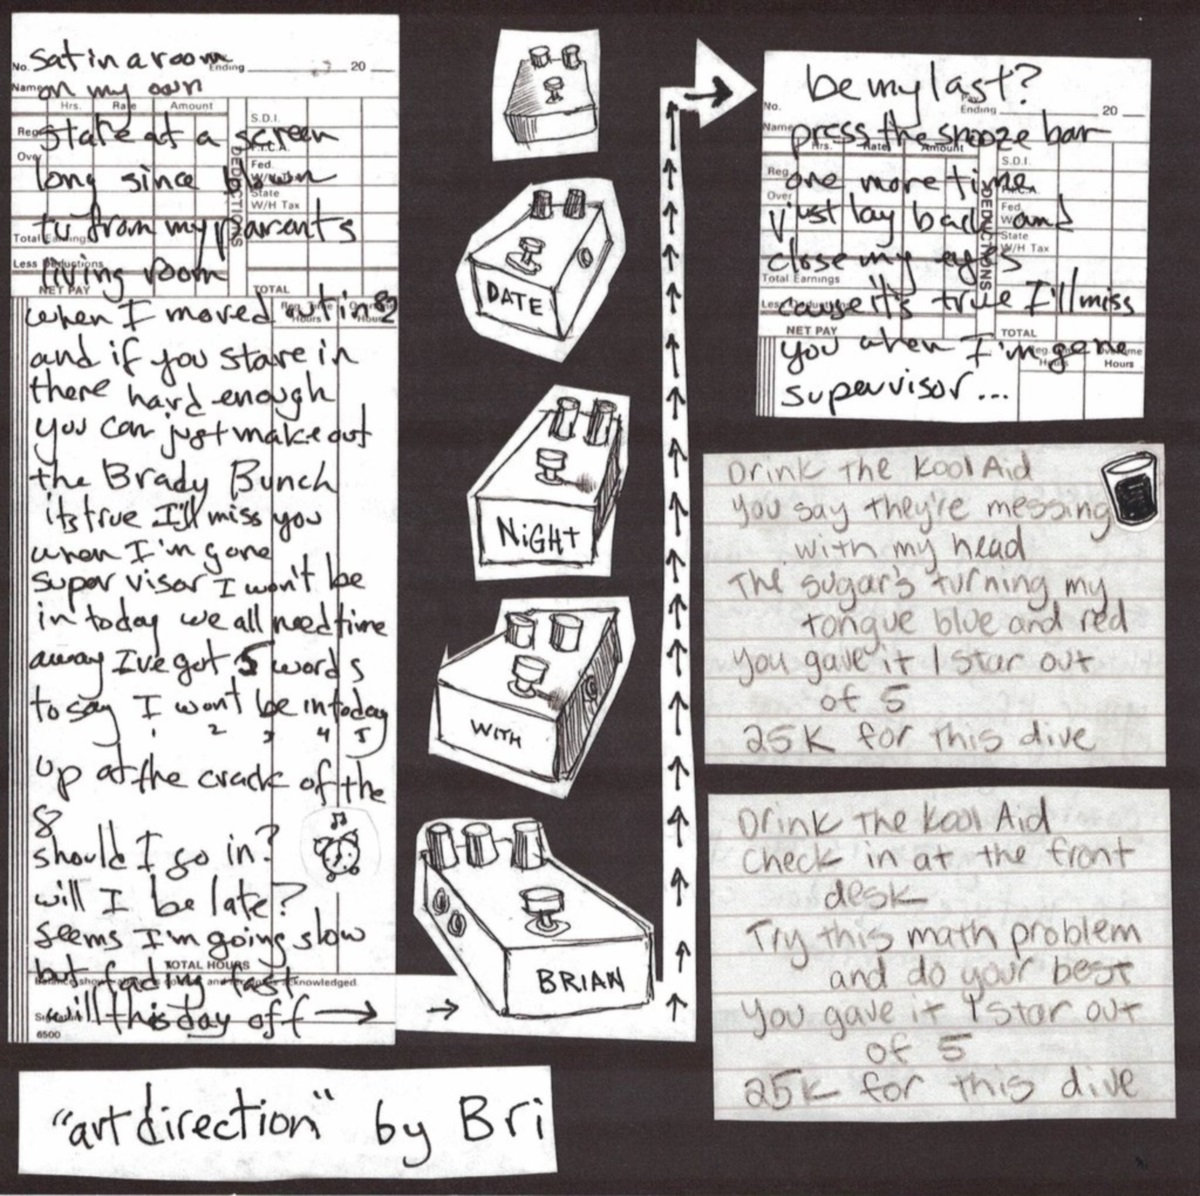 sat in a room
No. Ending 20
on my own
Name
Hrs. Rate Amount
S.D.I.
stare at a screen
Reg
F.I.C.A.
Over
Fed.
long since blown
W/H Tax
State
W/H Tax
DEDUCTIONS
tv from my parents
Total Earnings
Less Deductions
living room
NET PAY
TOTAL
when I moved out in 82
Reg. Time Hours
and if you stare in
there hard enough
you can just make out
the Brady Bunch
it's true I'll miss you
when I'm gone
supervisor I won't be
in today we all need time
away I've got 5 words
to say I won't be in today
1 2 3 4 5
up at the crack of the
8
should I go in?
will I be late?
seems I'm going slow
TOTAL HOURS
but fading fast
acknowledged
will this day off
6500
DATE
NiGHT
WITH
BRIAN
be my last?
No. Ending 20
Name
press the snooze bar
Hrs. Rate Amount
S.D.I.
Reg
one more time
Over
Fed.
just lay back and
State
W/H Tax
DEDUCTIONS
close my eyes
Total Earnings
Less Deductions
cause it's true I'll miss
NET PAY
TOTAL
you when I'm gone
Hours
Hours
supervisor...
Drink the Kool Aid
You say they're messing
with my head
The sugar's turning my
tongue blue and red
You gave it 1 star out
of 5
25K for this dive
Drink the Kool Aid
Check in at the front
desk
Try this math problem
and do your best
You gave it 1 star out
of 5
25K for this dive
"art direction" by Bri